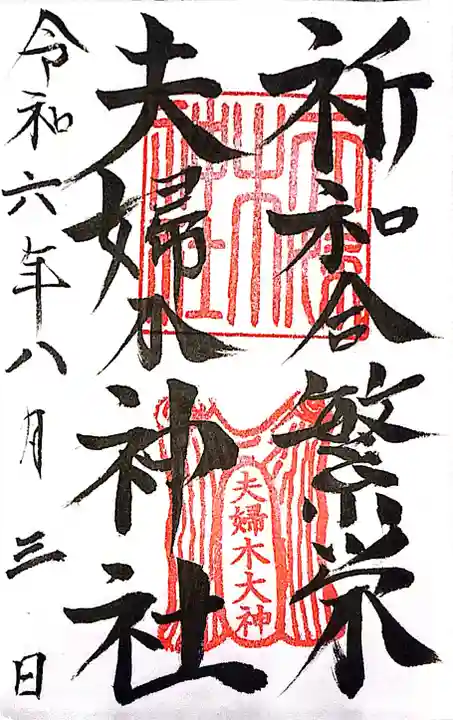 祈和合繁栄
夫婦木神社
夫婦木大神
令和六年八月三日